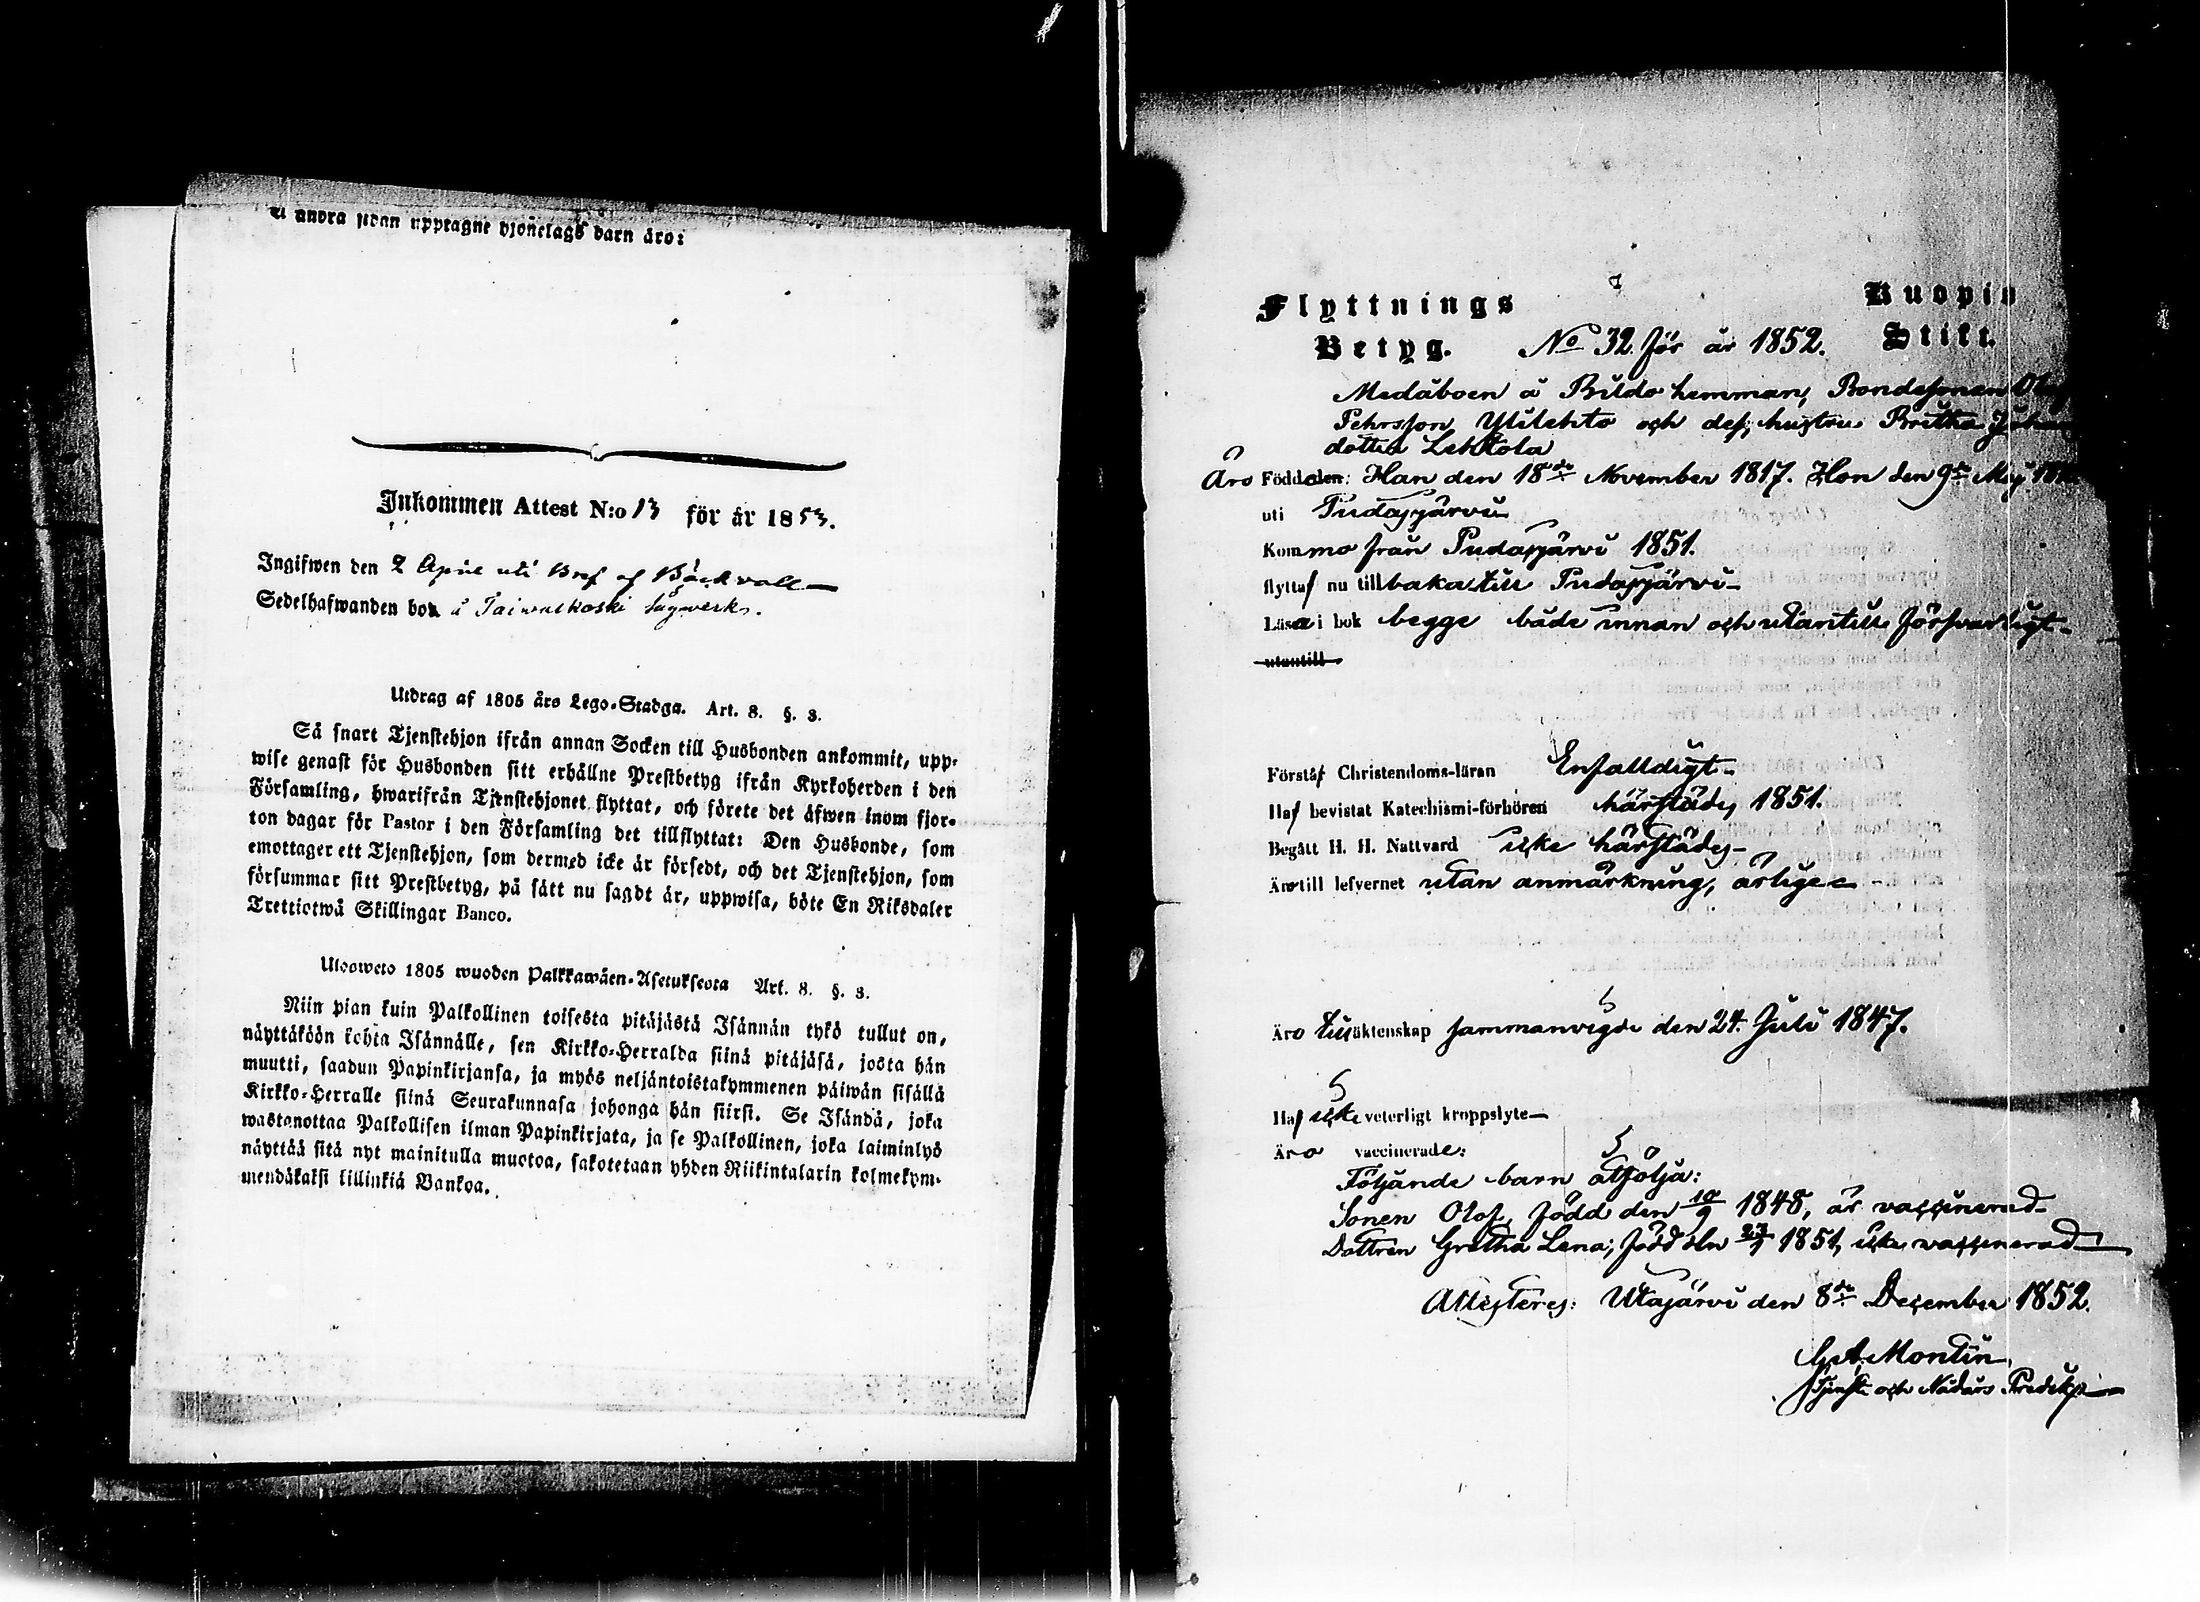 å andra sidan upptagne hjonelags barn äro:
Inkommen Attest N:o 13 för år 1853.
Ingifwen den 2 April uti Bref af Bäckvall
Sedelhafwanden bor å Taiwalkoski Sågwerk.
Utdrag af 1805 års Lego-Stadga. Art. 8. §. 3.
Så snart Tjenstehjon ifrån annan Socken till Husbonden ankommit, upp-
wise genast för Husbonden sitt erhållne Prestbetyg ifrån Kyrkoherden i den
Församling, hwarifrån Tjenstehjonet flyttat, och förete det äfwen inom fjor-
ton dagar för Pastor i den Församling det tillflyttat: Den Husbonde, som
emottager ett Tjenstehjon, som dermed icke är försedt, och det Tjenstehjon, som
försummar sitt Prestbetyg, på sätt nu sagdt är, uppwisa, böte En Riksdaler
Trettiotwå Skillingar Banco.
Ulosweto 1805 wuoden Palkkawäen-Asetuksesta Art. 8. §. 3.
Niin pian kuin Palkollinen toisesta pitäjästä Isännän tykö tullut on,
näyttäköön kohta Isännälle, sen Kirkko-Herralda siinä pitäjäsä, josta hän
muutti, saadun Papinkirjansa, ja myös neljäntoistakymmenen päiwän sisällä
Kirkko-Herralle siinä Seurakunnasa johonga hän siirsi. Se Isändä, joka
wastanottaa Palkollisen ilman Papinkirjata, ja se Palkollinen, joka laiminlyö
näyttää sitä nyt mainitulla muotoa, sakotetaan yhden Riikintalarin kolmekym-
mendäkaksi killinkiä Bankoa.
Flyttnings Kuopio
Betyg. No 32 för år 1852. Stift.
Medåboen å Buldo hemman, Bondesonen
Pehrsson Ylilehto och dess hustru Britha Johan
dotter Lehtola
Äro Födde den: Han den 18de November 1817. Hon den 9de Maj
uti Pudasjärvi
Kommo från Pudasjärvi 1851.
flytta nu tillbaka till Pudasjärvi
Läsa i bok begge både innan och utantill försvarligt
utantill
Förstå Christendoms-läran Enfalldigt
Ha bevistat Katechismi-förhören härstädes 1851.
Begått H. H. Nattvard icke härstädes
Äro till lefvernet utan anmärkning, ärlige
Äro till äktenskap sammanvigde den 24. Juli 1847.
Ha icke veterligt kroppslyte
Äro vaccinerade:
Följande barn åtfölja:
Sonen Olof, född den 10/9 1848, är vaccinerad
Dottren Gretha Lena, född den 23/1 1851, icke vaccinerad
Attesteres: Utajärvi den 8de December 1852.
G A Montin,
Tjenst. och Nådårs Predik